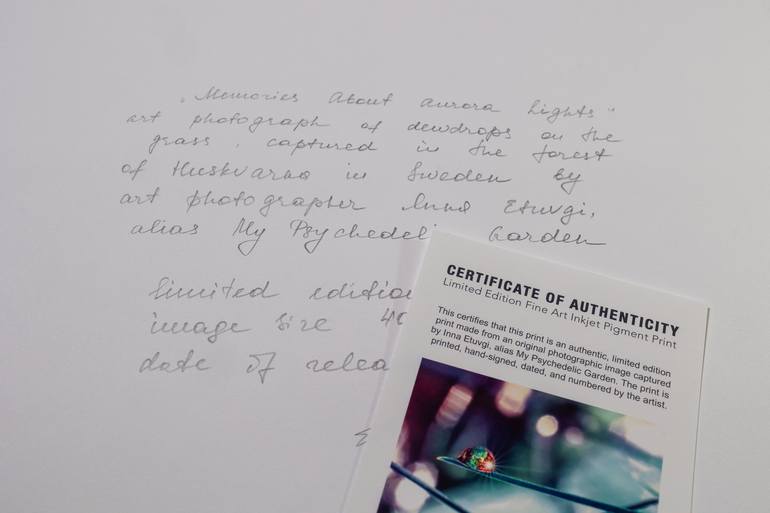 „Memories About aurora lights"
art photograph of dewdrops on the
grass, captured in the forest
of Huskvarna in Sweden by
art photographer Inna Etuvgi,
alias My Psychedeli Garden
limited editio
image size 40
date of relea
CERTIFICATE OF AUTHENTICITY
Limited Edition Fine Art Inkjet Pigment Print
This certifies that this print is an authentic, limited edition
print made from an original photographic image captured
by Inna Etuvgi, alias My Psychedelic Garden. The print is
printed, hand-signed, dated, and numbered by the artist.